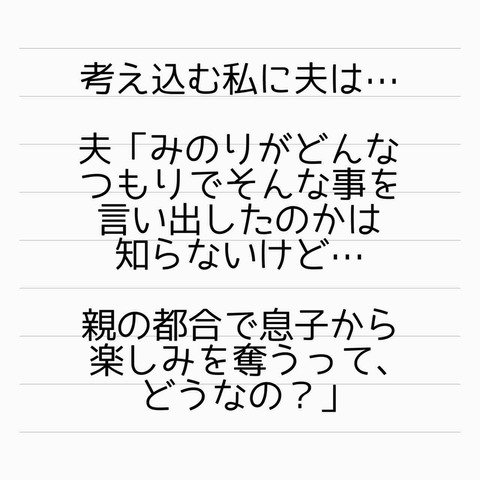 考え込む私に夫は…
夫「みのりがどんな
つもりでそんな事を
言い出したのかは
知らないけど…
親の都合で息子から
楽しみを奪うって、
どうなの？」